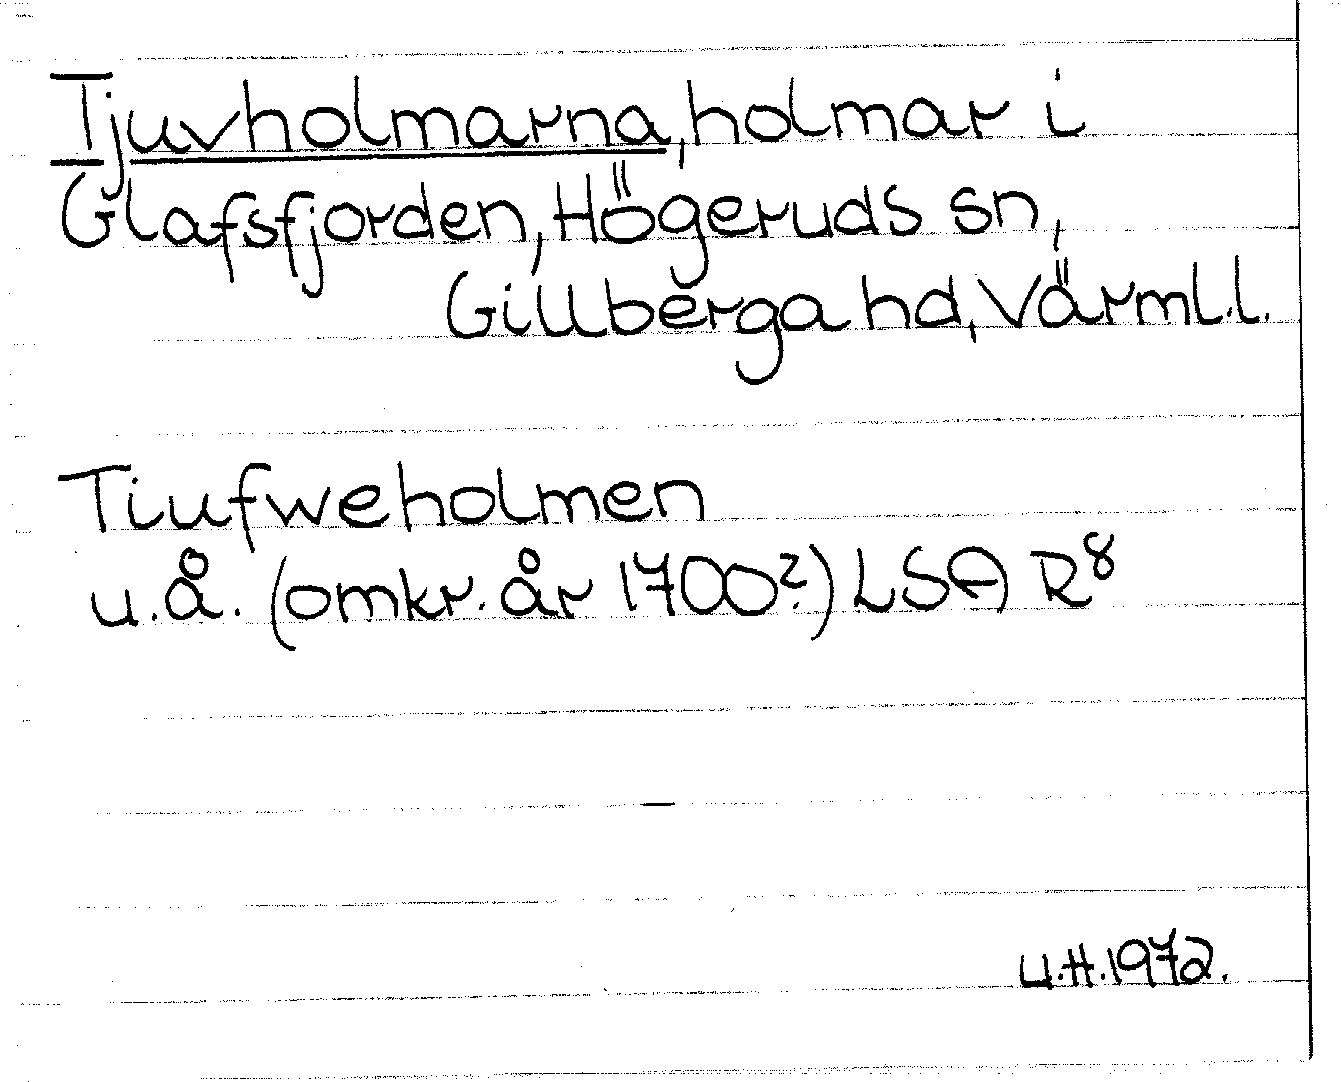 Tjuvholmarna, holmar i
Glafsfjorden, Högeruds sn,
Gillberga hd, Värml.l.
Tiufweholmen
u.å. (omkr. år 1700?) LSA R8
U.H.1972.